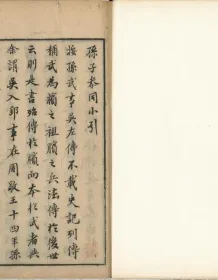 孫子參同小引
按孫武事吳左傳不載史記列傳
稱武為臏之祖臏之兵法傳於後世
云則是書始傳於臏而本於武者與
余謂吳入郢事在周敬王十四年孫